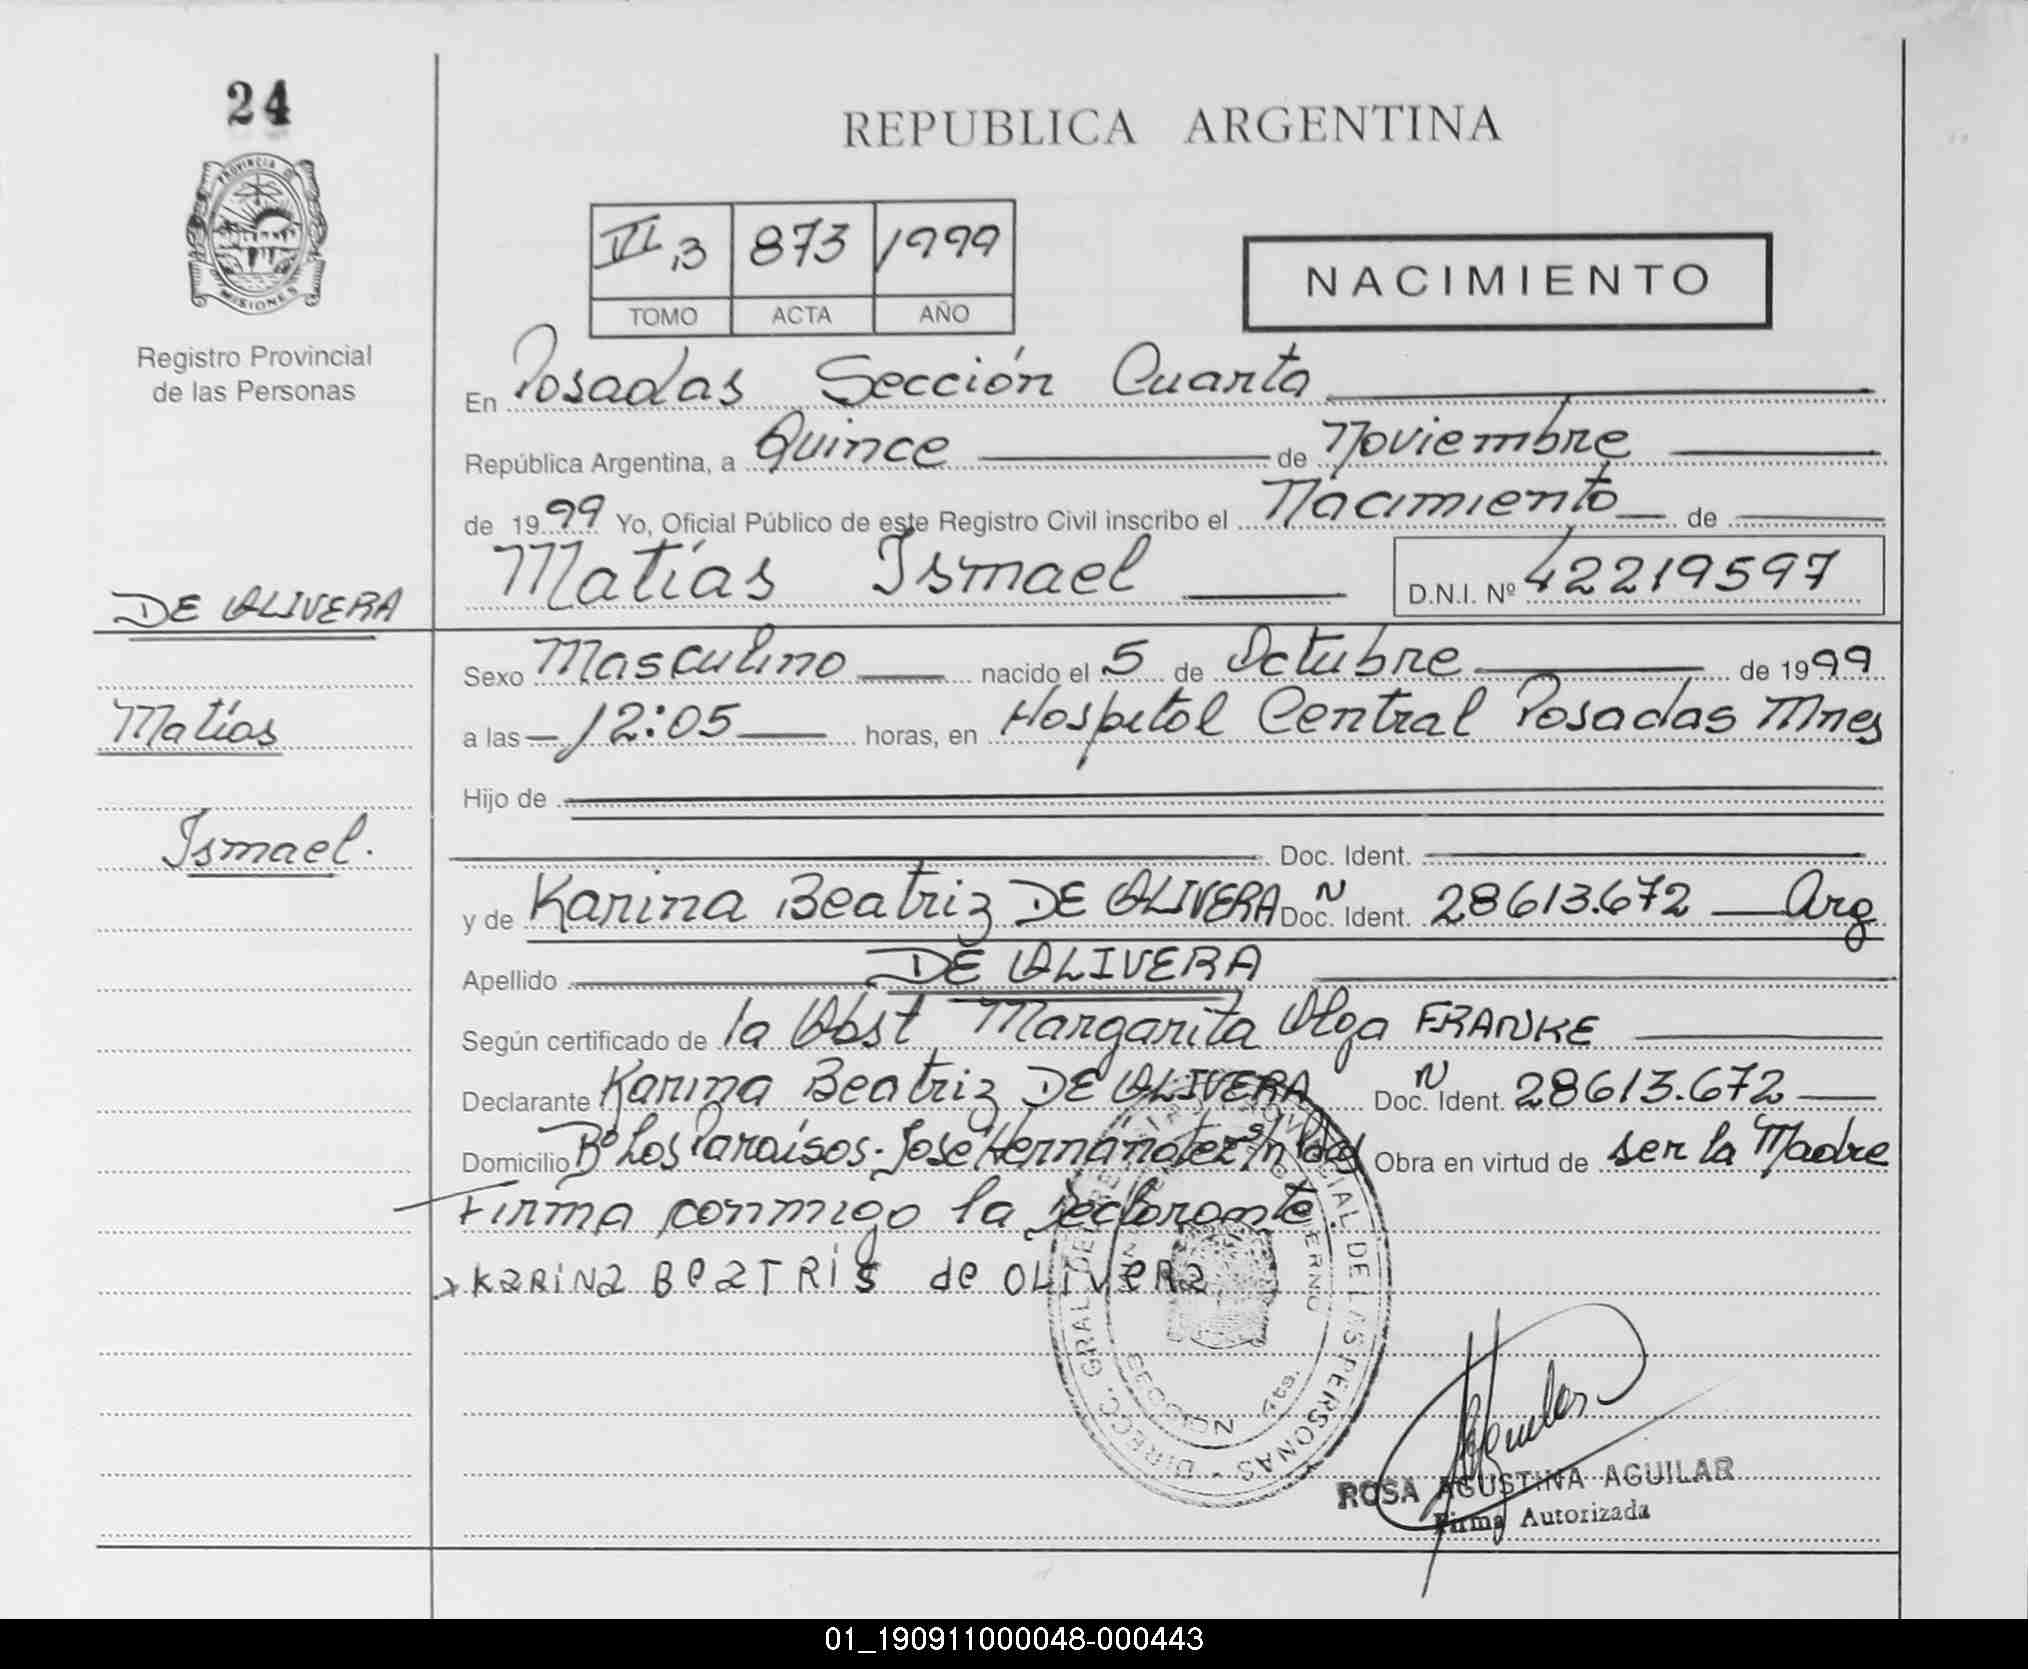 24
PROVINCIA D
MISIONES
Registro Provincial
de las Personas
REPUBLICA ARGENTINA
VI,3 873 1999
TOMO ACTA AÑO
NACIMIENTO
En Posadas Sección Cuarta
República Argentina, a Quince de Noviembre
de 1999 Yo, Oficial Público de este Registro Civil inscribo el Nacimiento de
Matías Ismael D.N.I. Nº 42219597
DE OLIVERA
Matías
Ismael.
Sexo Masculino nacido el 5 de Octubre de 1999
a las 12:05 horas, en Hospital Central Posadas Mnes
Hijo de
Doc. Ident.
y de Karina Beatriz DE OLIVERA Doc. N Ident. 28613.672 Arg
Apellido DE OLIVERA
Según certificado de la Obst Margarita Olga FRANKE
Declarante Karina Beatriz DE OLIVERA Doc. N Ident. 28613.672
Domicilio Bº Los Paraísos. José Hernández s/n Pdas Obra en virtud de ser la Madre
Firma conmigo la Declarante.
KARINA BEATRIS de OLIVERA
DIRECC. GRAL. DEL REGISTRO PROVINCIAL DE LAS PERSONAS
SECCION
ROSA AGUSTINA AGUILAR
Firma Autorizada
01_190911000048-000443